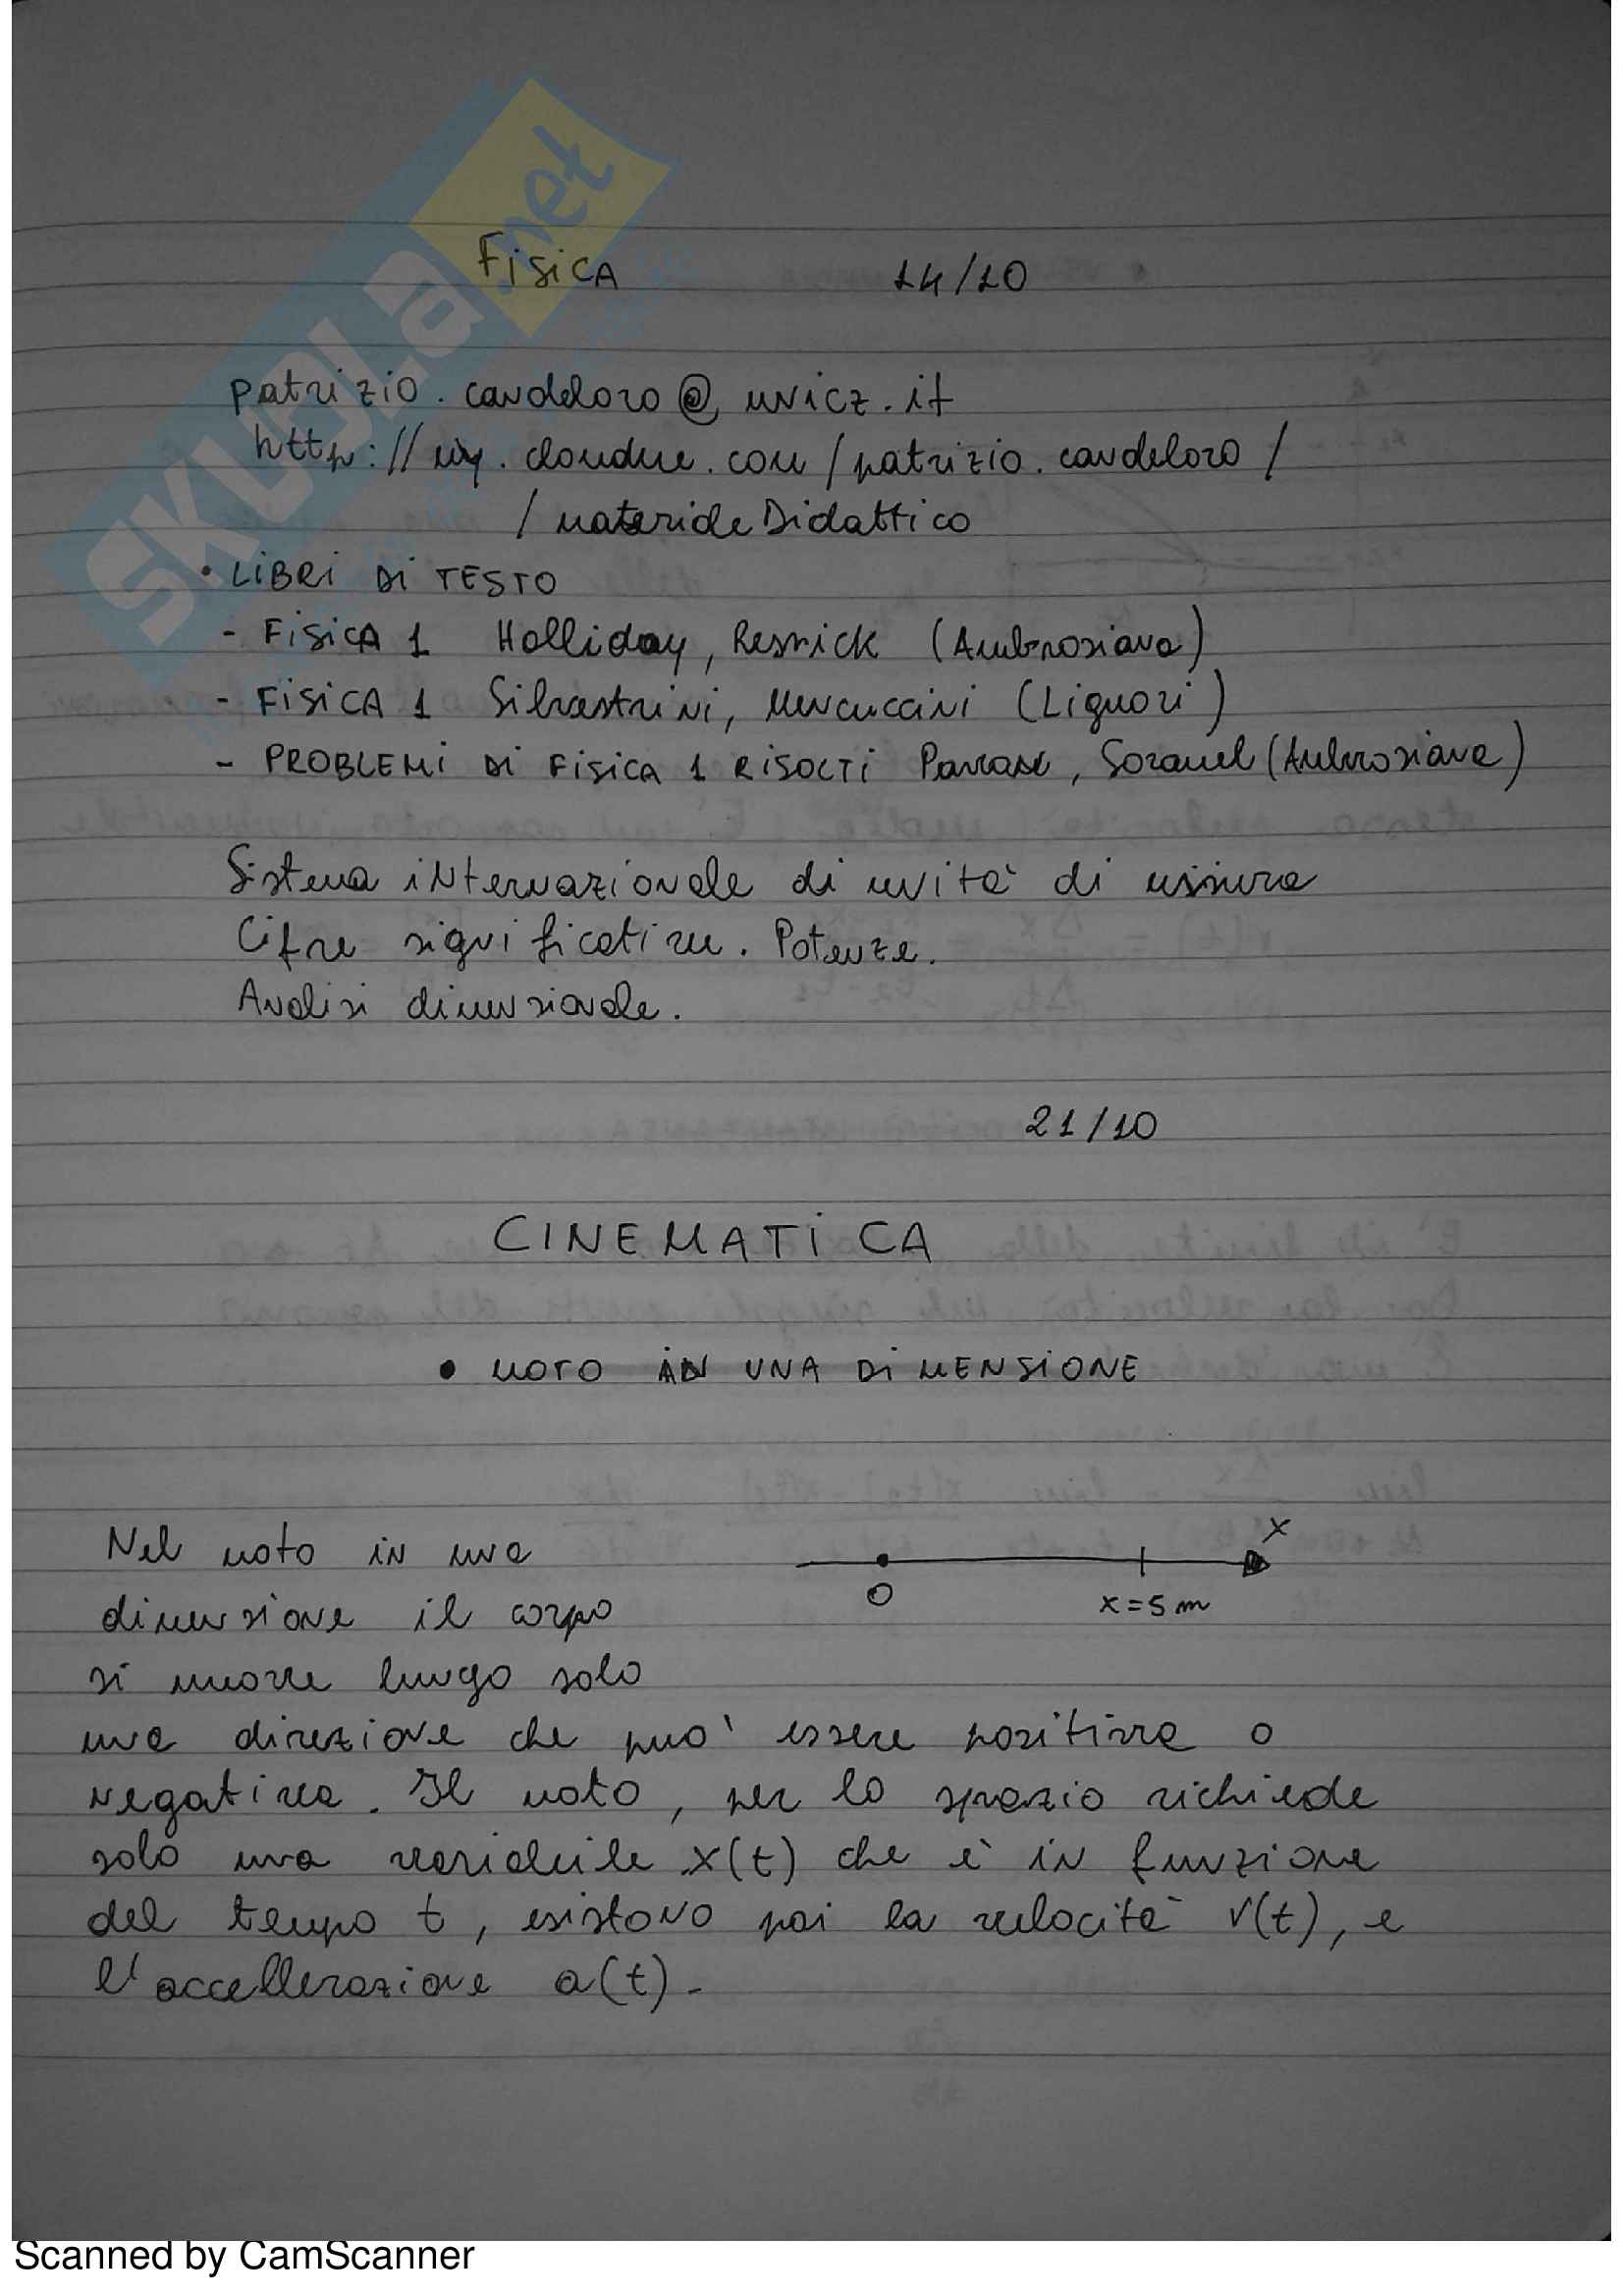 SKUOLA.net
Fisica 14/10
patrizio.candeloro@unicz.it
http://my.cloudme.com/patrizio.candeloro/
/materialeDidattico
• LIBRI DI TESTO
- FISICA 1 Holliday, Resnick (Ambrosiana)
- FISICA 1 Silvestrini, Mencuccini (Liguori)
- PROBLEMI DI FISICA 1 RISOLTI (Ambrosiana)
Sistema internazionale di unità di misura
Cifre significative. Potenze.
Analisi dimensionale.
21/10
CINEMATICA
• MOTO IN UNA DIMENSIONE
Nel moto in una
dimensione il corpo
si muove lungo solo
x
O
x=5 m
una direzione che può essere positiva o
negativa. Il moto, per lo spazio richiede
solo una variabile x(t) che è in funzione
del tempo t, esistono poi la velocità v(t), e
l'accellerazione a(t).
Scanned by CamScanner